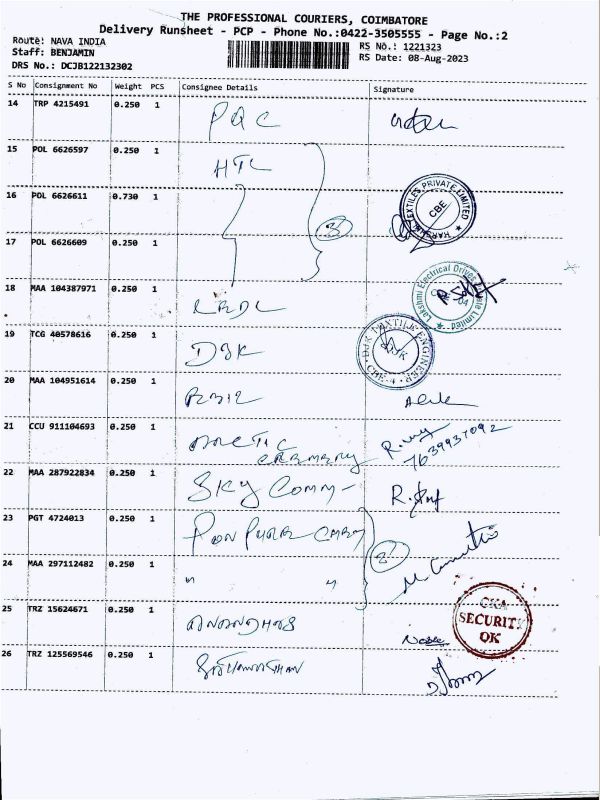 THE PROFESSIONAL COURIERS, COIMBATORE
Delivery Runsheet - PCP - Phone No.:0422-3505555 - Page No.:2
Route: NAVA INDIA
Staff: BENJAMIN
DRS No.: DCJB122132302
RS No.: 1221323
RS Date: 08-Aug-2023
S No Consignment No Weight PCS Consignee Details Signature
14 TRP 4215491 0.250 1 PQC
15 POL 6626597 0.250 1 HTL
16 POL 6626611 0.730 1
3
TEXTILES PRIVATE LIMITED
CBE
17 POL 6626609 0.250 1
18 MAA 104387971 0.250 1
Lakshmi Electrical Drives Private Limited
19 TCG 40578616 0.250 1 DJK
DJK TEXTILE ENGINEER
DJK
CBE-4
20 MAA 104951614 0.250 1
21 CCU 911104693 0.250 1 ARCTIC
7639937092
22 MAA 287922834 0.250 1 SKY COMM-
23 PGT 4724013 0.250 1 PON PURE CHEM
2
24 MAA 297112482 0.250 1 " "
25 TRZ 15624671 0.250 1
CKA
SECURITY
OK
26 TRZ 125569546 0.250 1